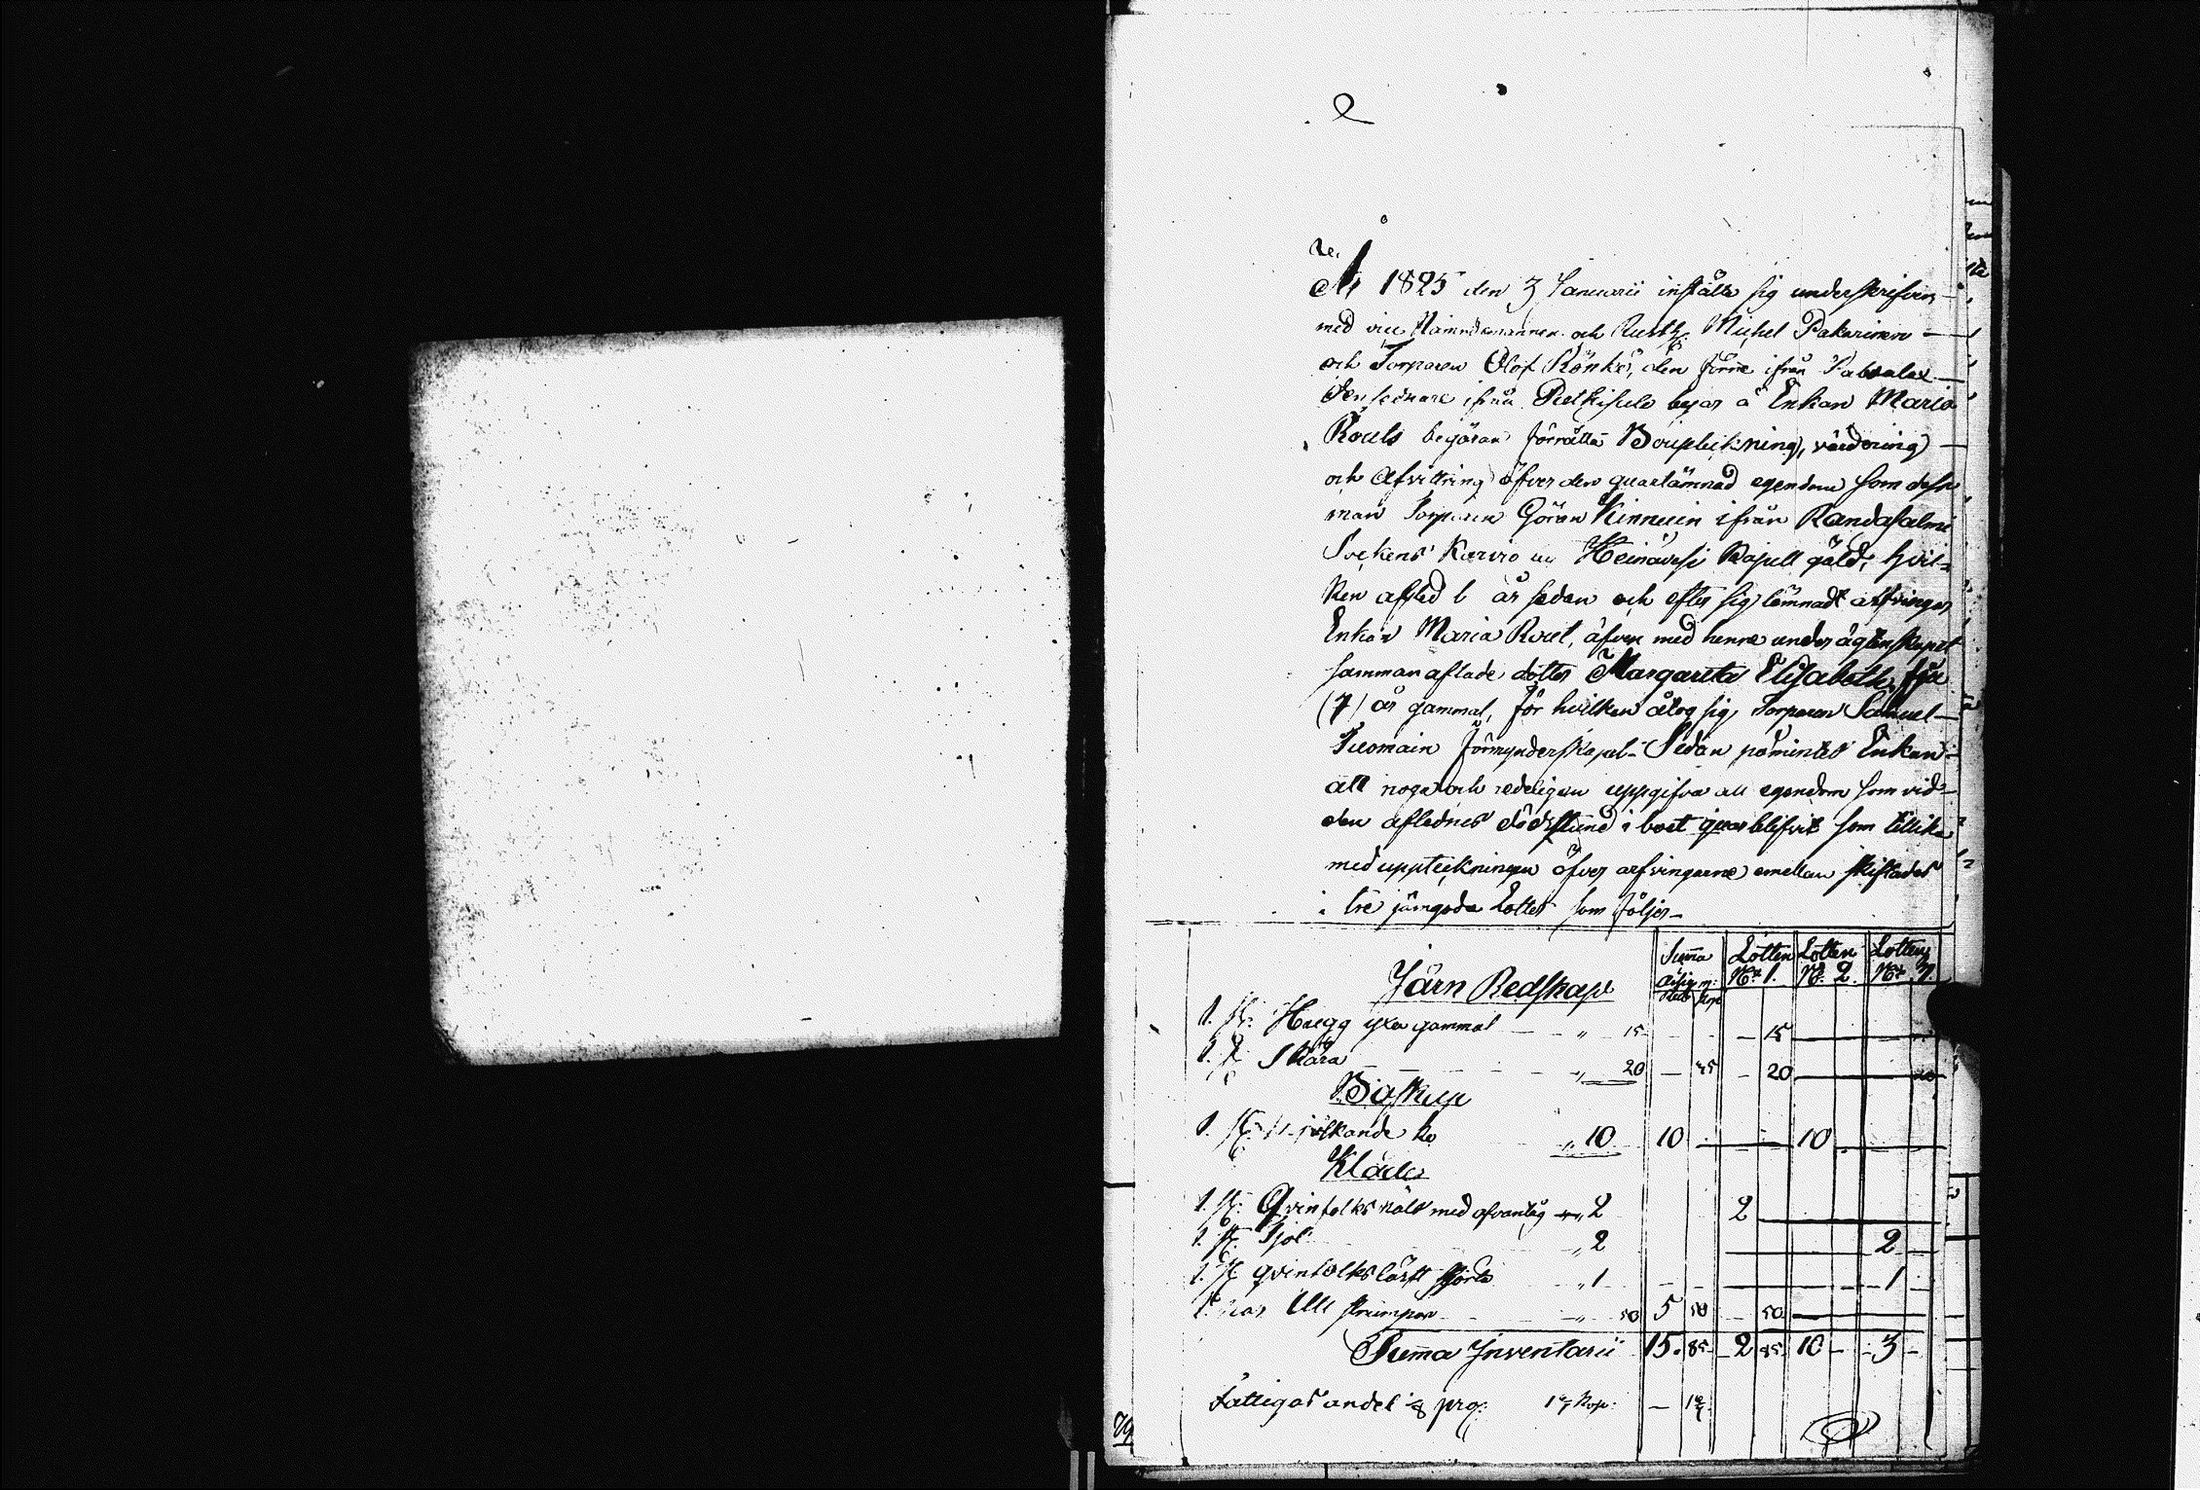 År 1825 den 3 Januarii inställte sig underskrifven
med vice Nämndemannen och Rusth: Michel Pakarinen
och Torparen Olof Rönkö, den förre ifrån
den sednare ifrån byar å Enkan Maria
Routs begäran förrätta Bouptekning, värdering
och Afvittring öfver den quarlämnad egendom som dess
man Torparen Göran Kinnuin ifrån Randasalmi
Sockens Karvio Heinävesi Kapell gäld, hvil-
ken afled 6 år sedan och efter sig lämnadt arfvingar
Enkan Maria Rout, äfven med henne under ägtenskapet
sammanaflade dotter Margareta Elisabeth
(7) år gammal, för hvilken åtog sig Torparen Samuel
Tuomain förmynderskapet. Sedan påmintes Enkan
att noga och redeligen uppgifva all egendom som vid
den aflednes dödsstund i boet quarblifvit som tillika
med uppteckningen öfver arfvingarne emellan skiftades
i tre jämgoda Lotter som följer
Summa Lotten Lotten Lotten
Assign: No 1. No 2. No
Rub Kop
Järn Redskap
1. st: Hugg yxa gammal " 15 15
1. st: Skära " 20 35 20
Boskap
1. st: Mjölkande ko " 10 10 10
Kläder
1. st: Qvinfolks med " 2 2
1. st: " 2 2
1. st: qvinfolks lärft " 1 1
1. Par Ull strumpor " 50 5 50 50
Summa Inventarii 15 85 2 85 10 3
Fattigas andel 1/8 prc:
79